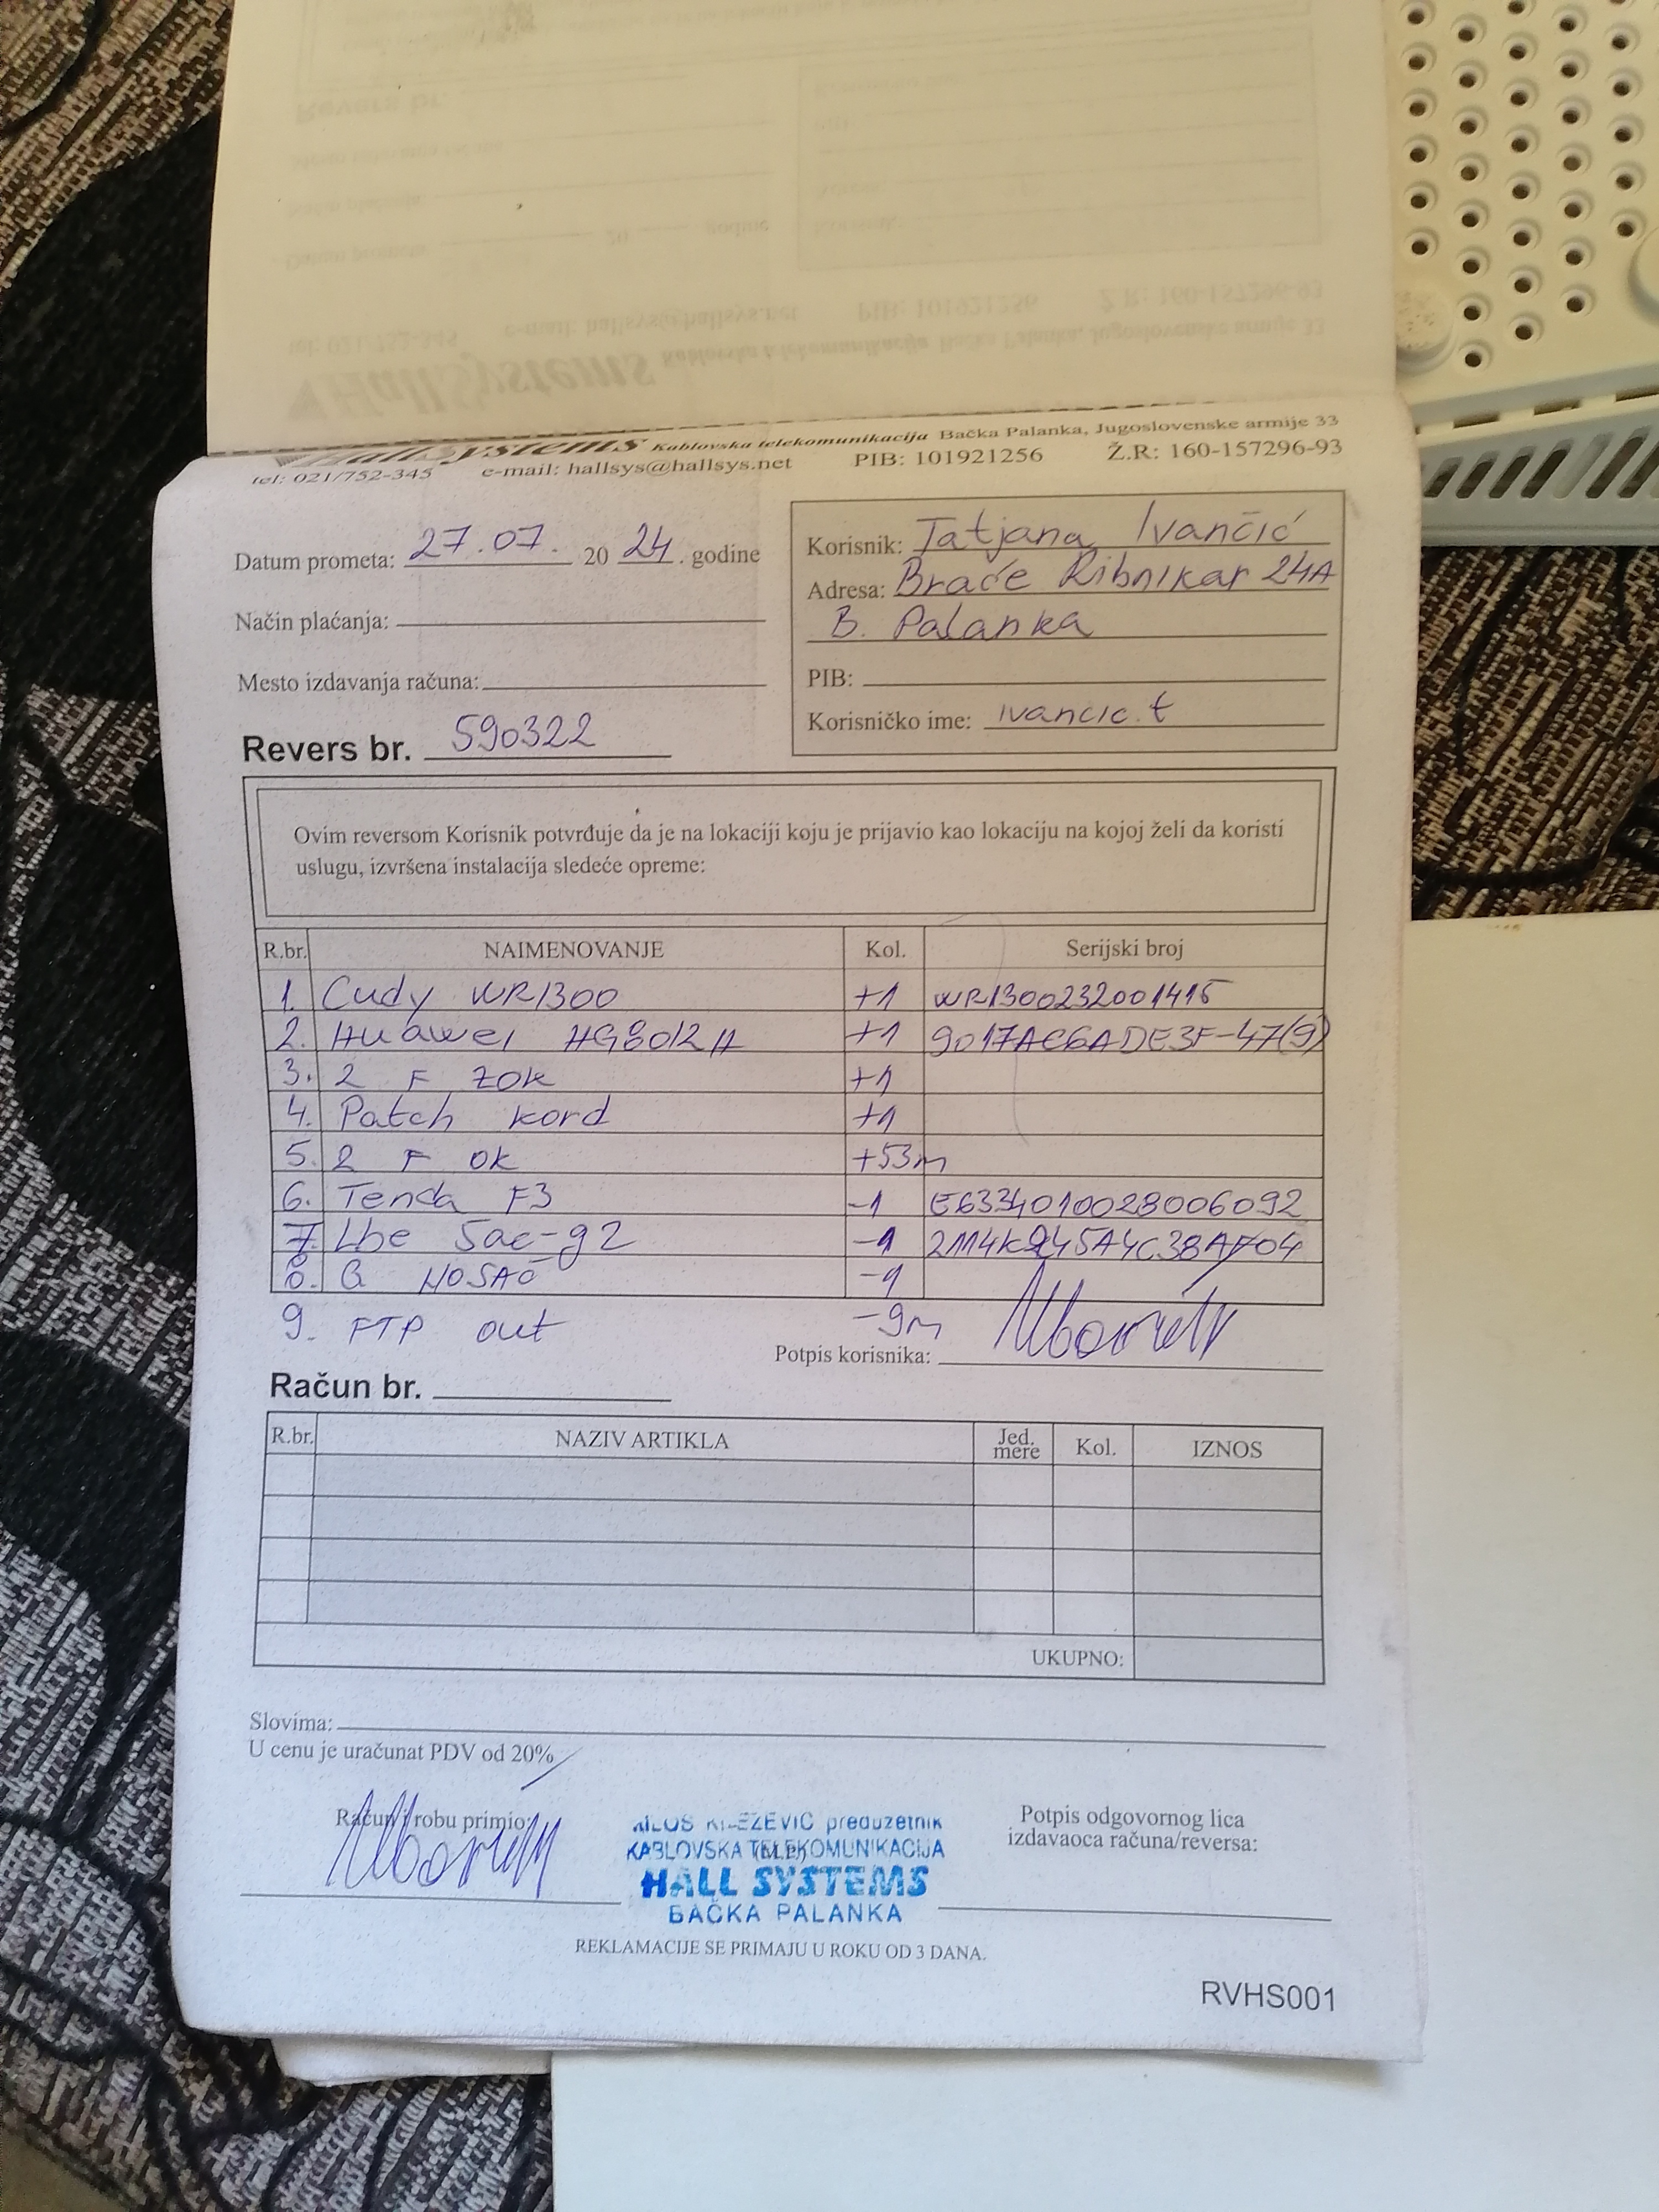 HallSystems Kablovska telekomunikacija Bačka Palanka, Jugoslovenske armije 33
tel: 021/752-345 e-mail: hallsys@hallsys.net PIB: 101921256 Ž.R: 160-157296-93
Datum prometa: 27.07. 20 24 . godine
Način plaćanja:
Mesto izdavanja računa:
Revers br. 590322
Korisnik: Tatjana Ivančić
Adresa: Braće Ribnikar 24A
B. Palanka
PIB:
Korisničko ime: ivancic.t
Ovim reversom Korisnik potvrđuje da je na lokaciji koju je prijavio kao lokaciju na kojoj želi da koristi
uslugu, izvršena instalacija sledeće opreme:
R.br. NAIMENOVANJE Kol. Serijski broj
1. Cudy WR1300 +1 WR1300232001415
2. Huawei HG8012H +1 9017AC6ADE3F-47(9)
3. 2 F ZOK +1
4. Patch kord +1
5. 2 F OK +53m
6. Tenda F3 -1 E6334010028006092
7. Lbe 5ac-g2 -1
8. G NOSAČ -1
9. FTP out -9m
Potpis korisnika:
Račun br.
R.br. NAZIV ARTIKLA Jed. mere Kol. IZNOS
UKUPNO:
Slovima:
U cenu je uračunat PDV od 20%
Račun i robu primio:
(M.P.)
MILOŠ KNEŽEVIĆ preduzetnik
KABLOVSKA TELEKOMUNIKACIJA
HALL SYSTEMS
BAČKA PALANKA
Potpis odgovornog lica
izdavaoca računa/reversa:
REKLAMACIJE SE PRIMAJU U ROKU OD 3 DANA.
RVHS001